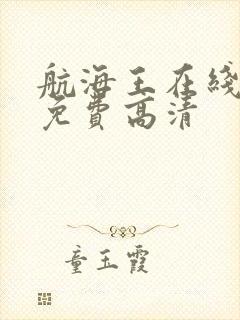 航海王在綫
免費高清
童玉霞